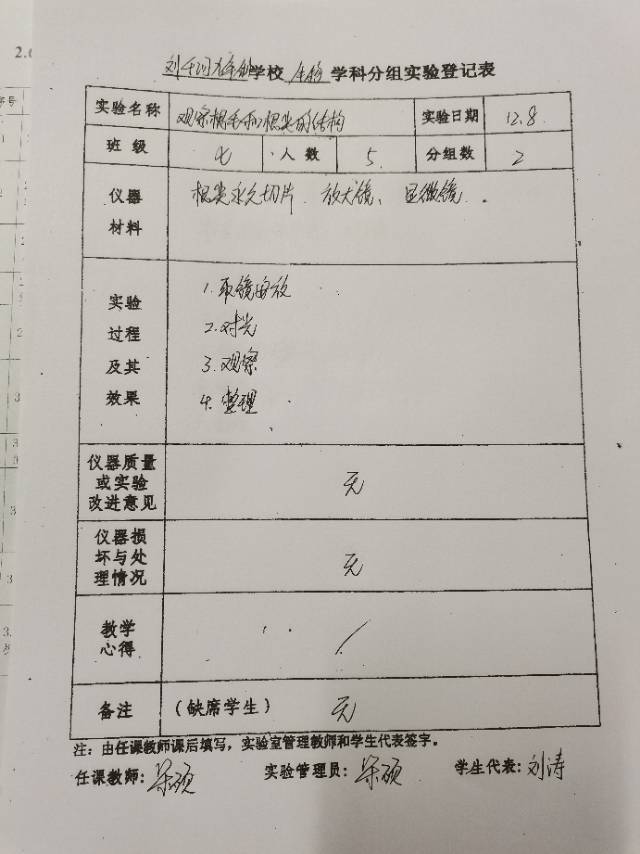 学校 生物 学科分组实验登记表
实验名称 观察根毛和根尖的结构 实验日期 12.8.
班级 七 人数 5 分组数 2
仪器材料 根尖永久切片、放大镜、显微镜。
实验过程及其效果
1.取镜安放
2.对光
3.观察
4.整理
仪器质量或实验改进意见 无
仪器损坏与处理情况 无
教学心得 /
备注 (缺席学生) 无
注：由任课教师课后填写，实验室管理教师和学生代表签字。
任课教师：硕 实验管理员：硕 学生代表：刘涛